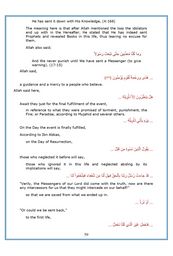 has sent it down with His Knowledge, (4:166)
The meaning here is that after Allah mentioned the loss the idolators
end up with in the Hereafter, He stated that He has indeed sent
Prophets and revealed Books in this life, thus leaving no excuse for
them.
Allah also said:
وَمَا كُنَّا مُعَذِّبِينَ حَتَّى نَبْعَثَ رَسُولاً
And We never punish until We have sent a Messenger (to give
warning). (17:15)
Allah said,
... هُدًى وَرَحْمَةً لِّقَوْمٍ يُؤْمِنُونَ
a guidance and a mercy to a people who believe.
Allah said here,
هَلْ يَنظُرُونَ إِلاَّ تَأْوِيلَهُ ...
Await they just for the final fulfillment of the event,
in reference to what they were promised of torment, punishment, the
Fire; or Paradise, according to Mujahid and several others.
... يَوْمَ يَأْتِي تَأْوِيلُهُ ...
On the Day the event is finally fulfilled,
According to Ibn Abbas,
on the Day of Resurrection,
... يَقُولُ الَّذِينَ نَسُوهُ مِن قَبْلُ ...
those who neglected it before will say,
those who ignored it in this life and neglected abiding by its
implications will say,
... قَدْ جَاءتْ رُسُلُ رَبِّنَا بِالْحَقِّ فَهَل لَّنَا مِن شُفَعَاء فَيَشْفَعُواْ لَنَا ...
"Verily, the Messengers of our Lord did come with the truth, now are there
any intercessors for us that they might intercede on our behalf!"
so that we are saved from what we ended up in.
... أَوْ نُرَدُّ ...
"Or could we be sent back,"
to the first life,
... فَنَعْمَلَ غَيْرَ الَّذِي كُنَّا نَعْمَلُ ...